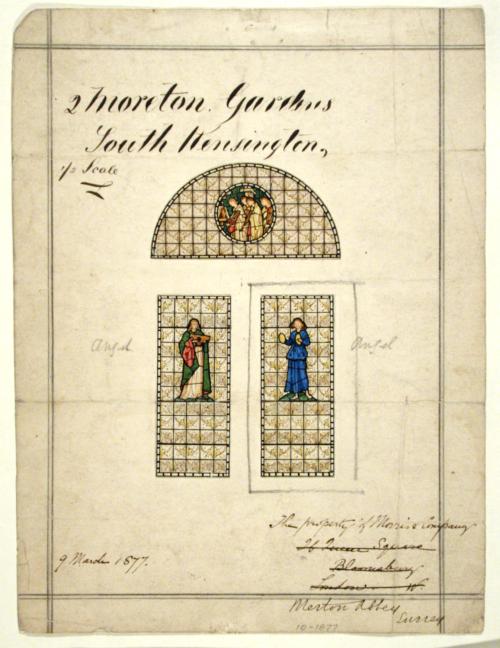 2 Moreton Gardens
South Kensington,
1/2 Scale
Angel
Angel
The property of Morris & Company
26 Queen Square
Bloomsbury
London W.
Merton Abbey
Surrey
9 March 1877.
10-1877